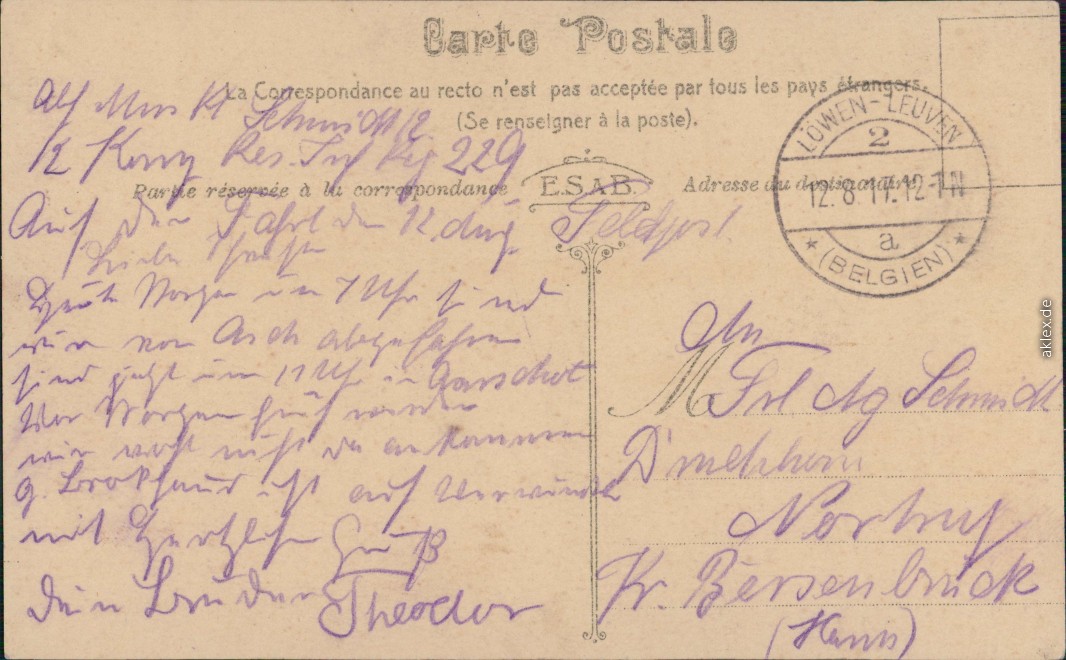 Carte Postale
La Correspondance au recto n'est pas acceptée par tous les pays étrangers.
(Se renseigner à la poste).
Partie réservée à la correspondance
E.S.A.B.
Adresse du destinataire
LÖWEN-LEUVEN
2
12.8.17.12-1N
a
* (BELGIEN) *
Schmidt
12 Komp Res. Inf Reg 229
Auf der Fahrt den 12. Aug.
Feldpost
Liebe
Heute Morgen um 7 Uhr sind
wir von Asch abgefahren
sind jetzt um 11 Uhr in Aarschot
Vor Morgen früh werden
wir wohl nicht da ankommen
G. Brokhaus ist auf Verwundet
mit Herzlichen Gruß
dein Bruder Theodor
An
M
Frl Ag Schmidt
Druchhorn
Nortrup
Kr. Bersenbrück
(Hann)
aklex.de